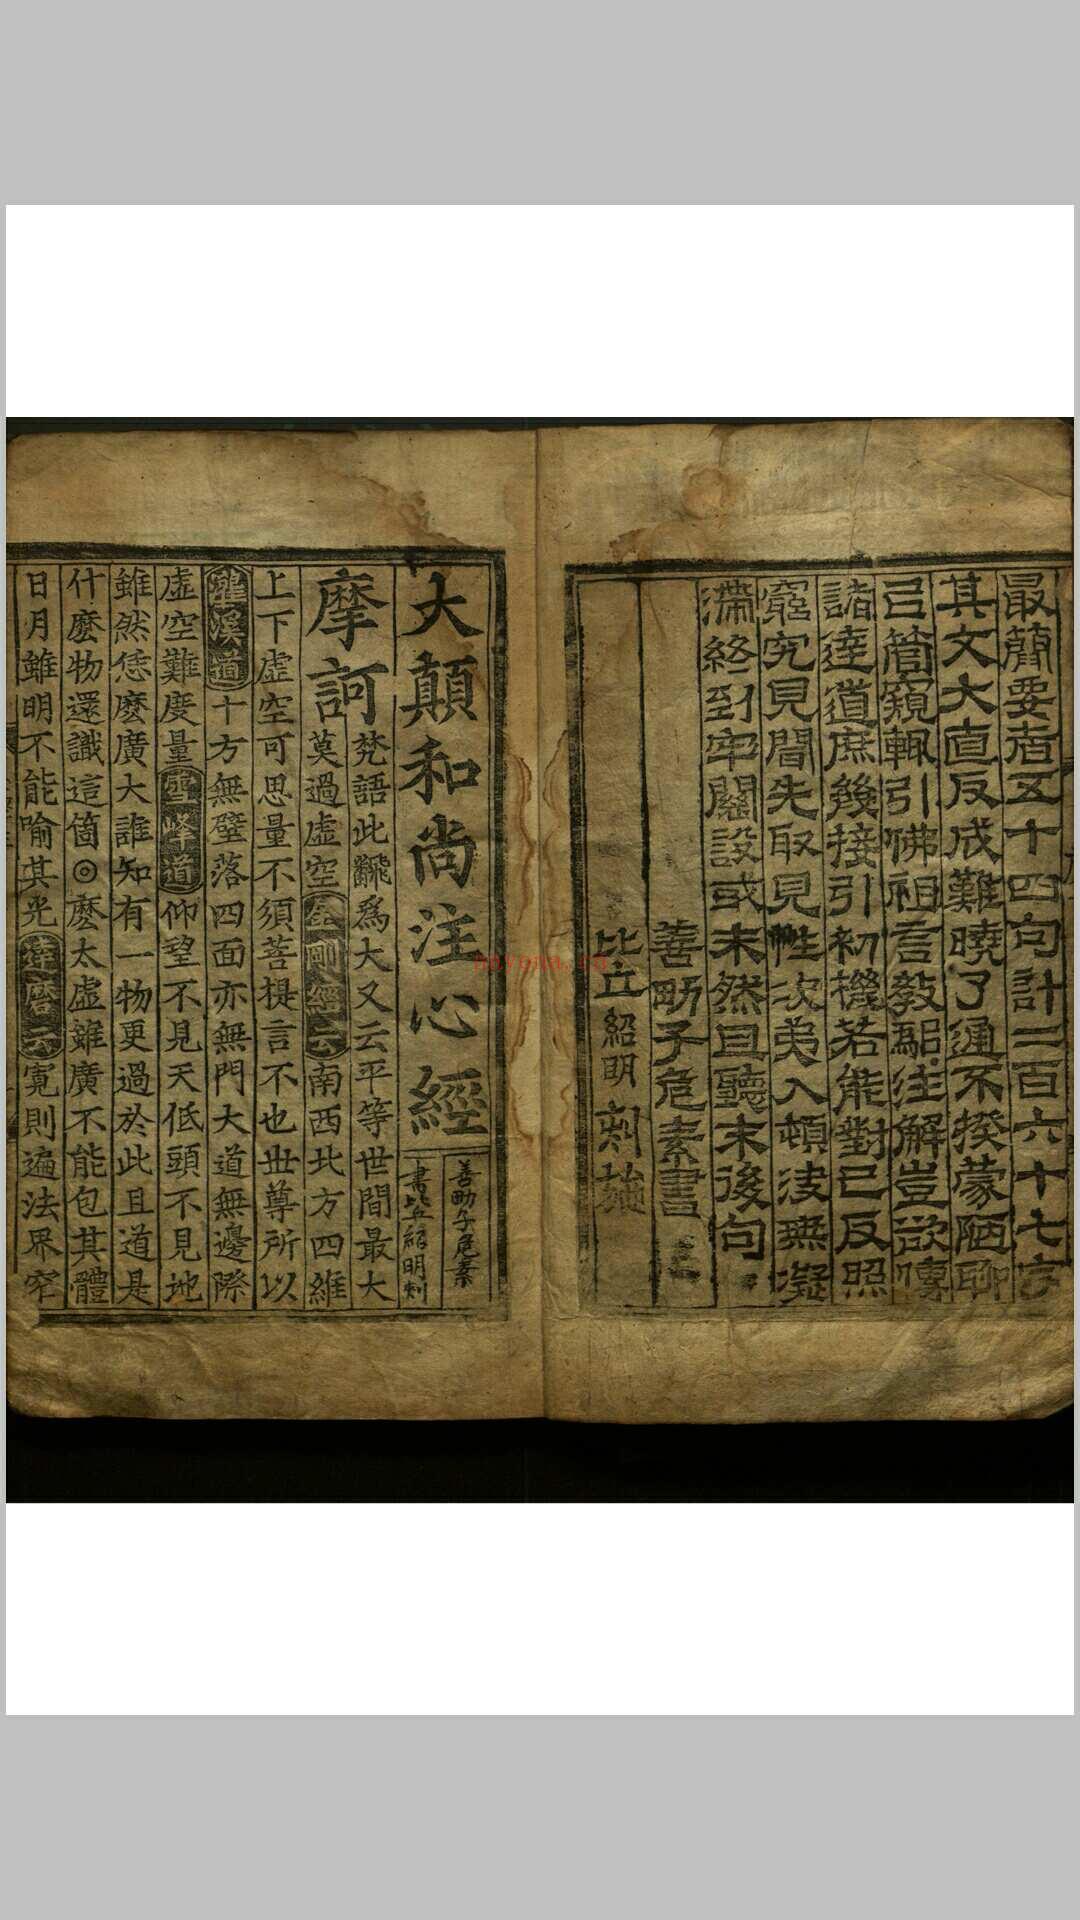 最簡要者五十四句計二百六十七字
其文大直反成難曉了通不揆蒙陋聊
已管窺輒引佛祖言教註解豈欲傳
諸達道庶幾接引初機若能對已反照
窮究見聞先取見性次弟入頓浸無凝
滯終到牢關設或未然且聽末後句
善助子危素書
比丘紹明刻施
大顛和尚注心經
善助子危素
書比丘紹明刻
摩訶
梵語此飜爲大又云平等世間最大
莫過虛空金剛經云南西北方四維
上下虛空可思量不須菩提言不也世尊所以
龍溪道十方無壁落四面亦無門大道無邊際
虛空難度量雪峰道仰望不見天低頭不見地
雖然恁麽廣大誰知有一物更過於此且道是
什麽物還識這箇◎麽太虛雖廣不能包其體
日月雖明不能喻其光達磨云寬則遍法界窄